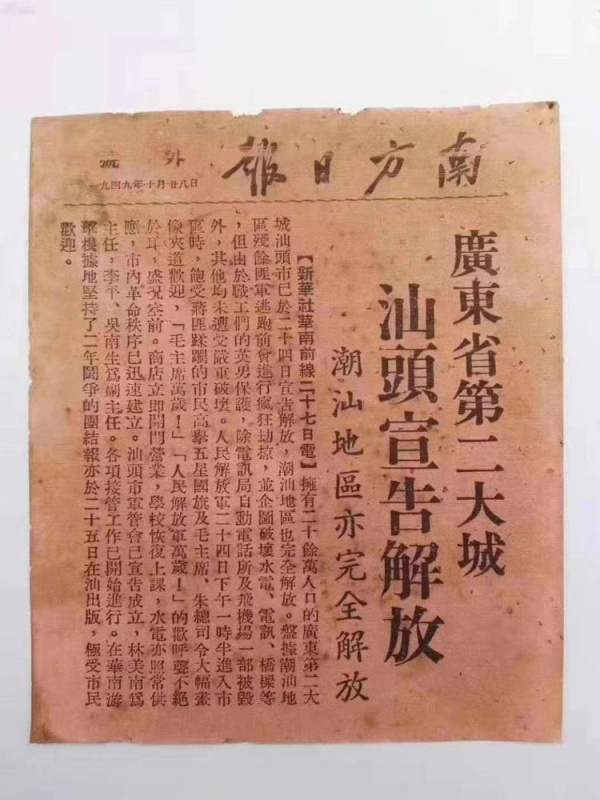 南方日報
號外
一九四九年十月廿八日
廣東省第二大城
汕頭宣告解放
潮汕地區亦完全解放
【新華社華南前線二十七日電】擁有二十餘萬人口的廣東第二大
城汕頭市已於二十四日宣告解放，潮汕地區也完全解放。盤據潮汕地
區殘餘匪軍逃跑前會進行瘋狂劫掠，並企圖破壞水電、電訊、橋樑等
，但由於職工們的英勇保護，除電訊局自動電話所及飛機場一部被毀
外，其他均未遭受嚴重破壞。人民解放軍二十四日下午一時半進入市
區時，飽受蔣匪蹂躪的市民高舉五星國旗及毛主席、朱總司令大幅畫
像夾道歡迎，「毛主席萬歲！」「人民解放軍萬歲！」的歡呼聲不絕
於耳，盛況空前。商店立即開門營業，學校恢復上課，水電亦照常供
應，市內革命秩序已迅速建立。汕頭市軍管會已宣告成立，林美南爲
主任，李平、吳南生爲副主任。各項接管工作已開始進行。在華南游
擊根據地堅持了二年鬪爭的團結報亦於二十五日在汕出版，極受市民
歡迎。